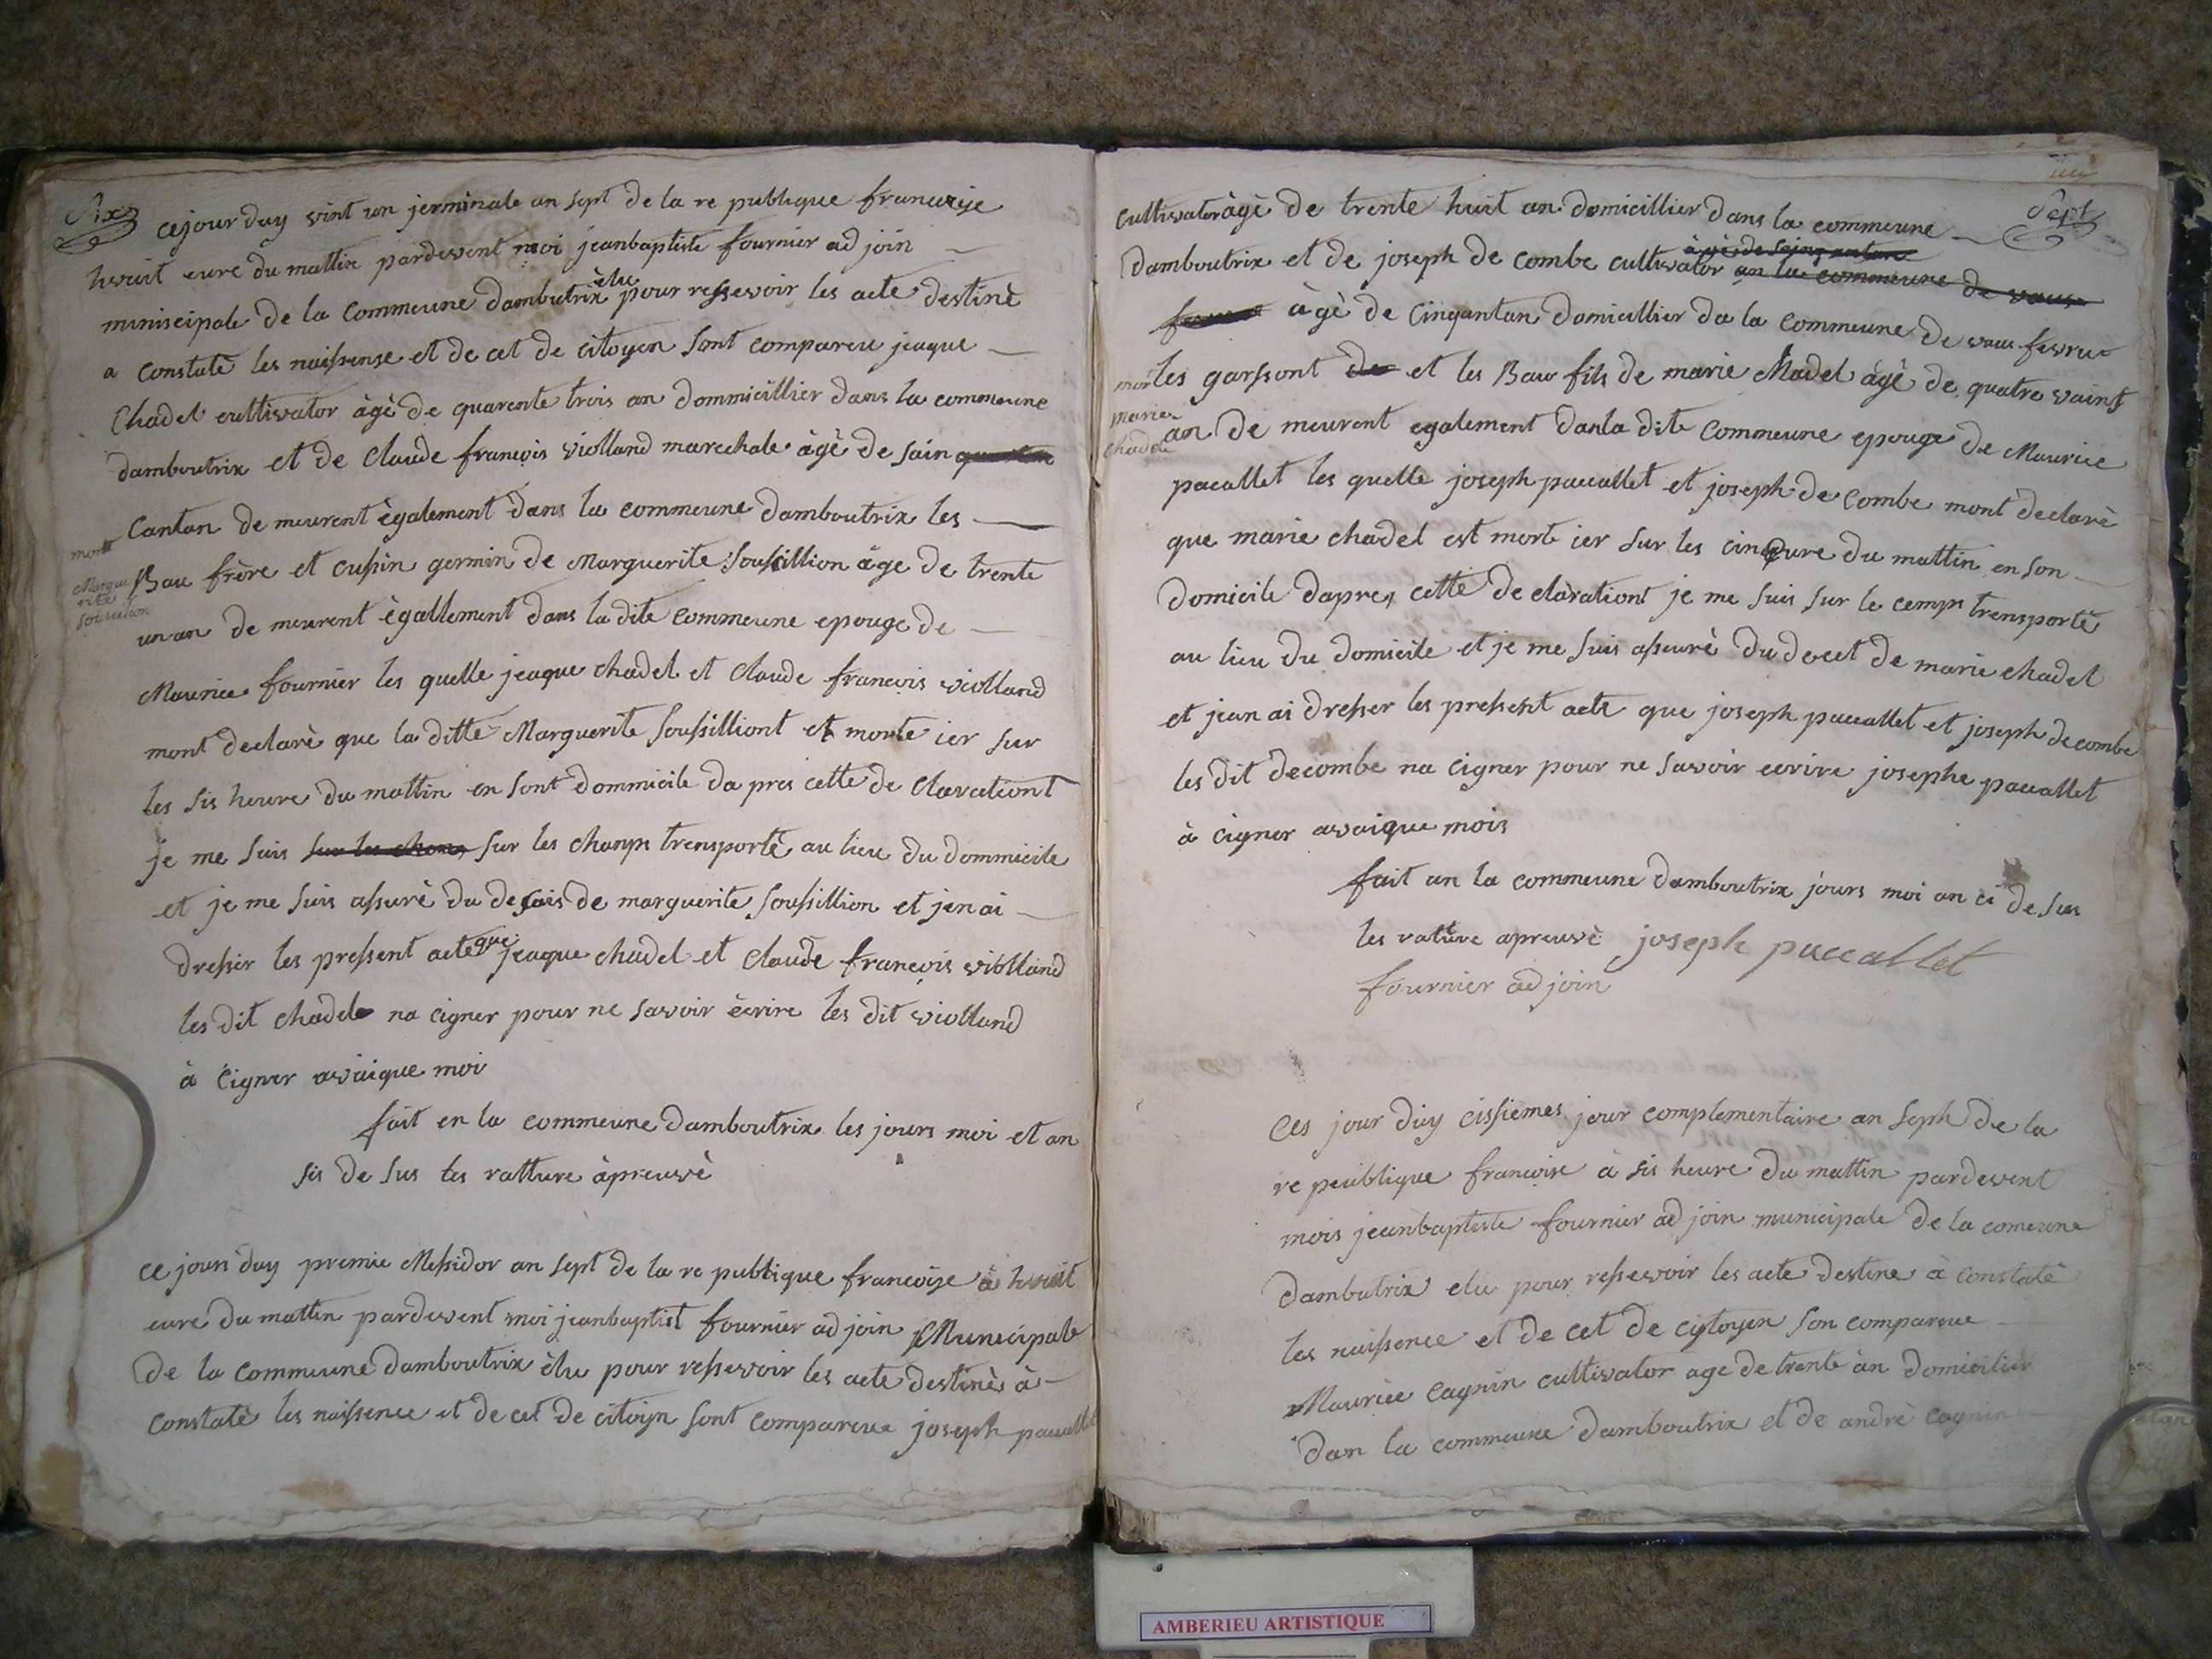 Six
cejourduy vint un jerminale an sept de la re publique francoise
hevuit eure du mattin pardevent moi jeanbaptiste fournier ad join
muniscipale de la Commeune dambutrix élu pour ressevoir les acte destiné
a constaté les naissense et de cet de citoyen sont compareu jeaque
Chadel cultivator âgé de quarente trois an dommicillier dans la commeune
damboutrix et de Claude françois violland marechale âgé de sain
Cantan de meurent également dans la commeune damboutrix les
mort
Margue
rite
soussilion
Bau frère et cusin germin de Marguerite Soussillion âge de trente
un an de meurent égallement dans la dite commeune epouge de
Maurice fournier les quelle jeaque chadel et Claude francois violland
mont declaré que la ditte Marguerite Soussilliont et morte ier sur
les sis heure du mattin en sont dommicile da pres cette de Claraciont
je me suis sur les chons sur les chanps trensporté au lieu du dommicile
et je me suis assuré du desais de marguerite soussillion et jen ai
dresser les pressent acte que jeaque chadel et Claude francois violland
les dit chadel na cigner pour ne savoir écrire les dit violland
à Cigner avaique moi
fait en la commeune damboutrix les jours moi et an
sis de sus les ratture àpreuvé
ce jours duy premie Messidor an sept de la re publique francoise à hevuit
eure du mattin pardevent moi jeanbaptist fournier ad join Municipale
de la commeune damboutrix élu pour ressevoir les acte destiné à
constaté les naissence et de cet de citoyn sont compareue joseph paccallet
Sept
cultivator âgé de trente huit an domicillier dans la commeune
damboutrix et de joseph de combe cultivator an la commeune de vaus
àgé de sainquantan
àgé de Cinquantan domicillier da la commeune de vaus fevrue
mort
marie
chadel
les garssont de et les Bau fils de marie Chadel âgé de quatre vaint
an de meurent egalement danla dite commeune epouge de Maurice
pacallet les quelle joseph paccallet et joseph de combe mont declaré
que marie chadel est morte ier sur les cinq eure du mattin en son
domicile dapres cette de clarationt je me suis sur le cemps trensporté
au lieu du domicile et je me suis asseuré du decet de marie chadel
et jean ai dresser les pressent acte que joseph paccallet et joseph decombe
les dit decombe na cigner pour ne savoir ecrire josephe paccallet
à cigner avaique mois
fait an la commeune damboutrix jours moi an ci de sus
les rature apreuvé joseph paccallet
fournier ad join
Ces jour duy cissiemes jour complementaire an seph de la
re peublique francoise à sis heure du mattin pardevent
mois jeanbaptiste fournier ad join municipale de la comeune
dambutrix elu pour ressevoir les acte destine à constaté
les naissence et de cet de cytoyen son compareue
Maurice Cagnin cultivator age de trente an domicilier
dan la commeune damboutrix et de andré cagnin
AMBERIEU ARTISTIQUE